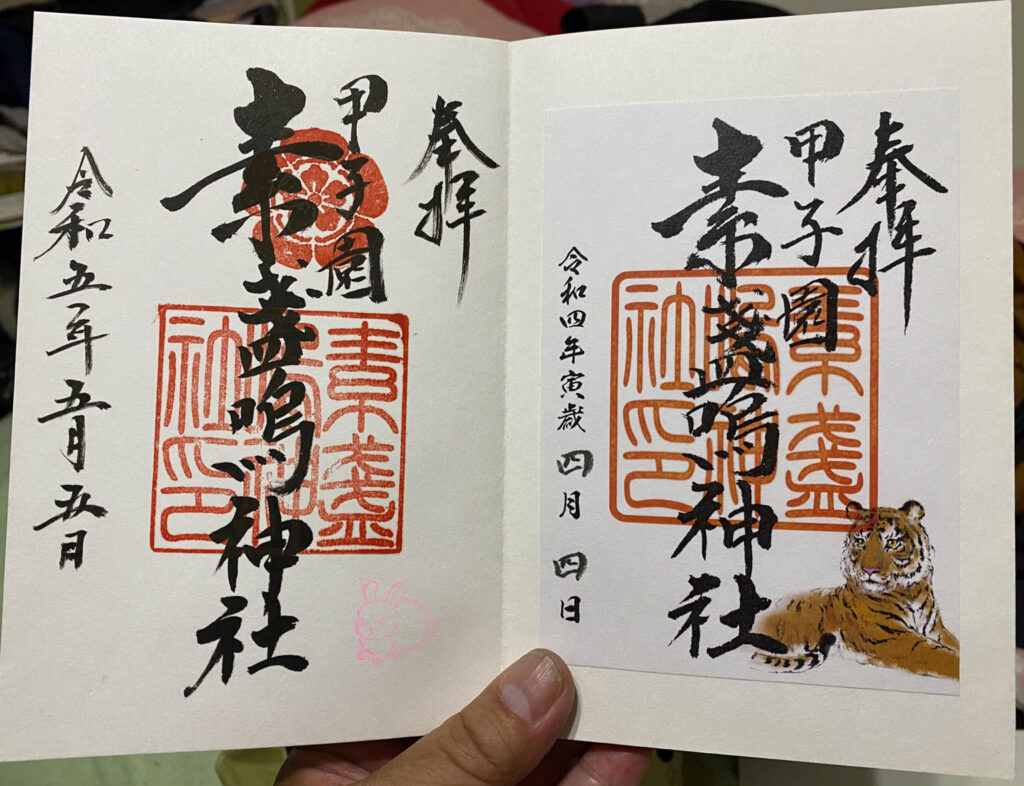 奉拝
甲子園
素盞嗚神社
素盞
嗚神
社印
令和四年寅歳 四月 四日
奉拝
甲子園
素盞嗚神社
素盞
嗚神
社印
令和五年五月五日